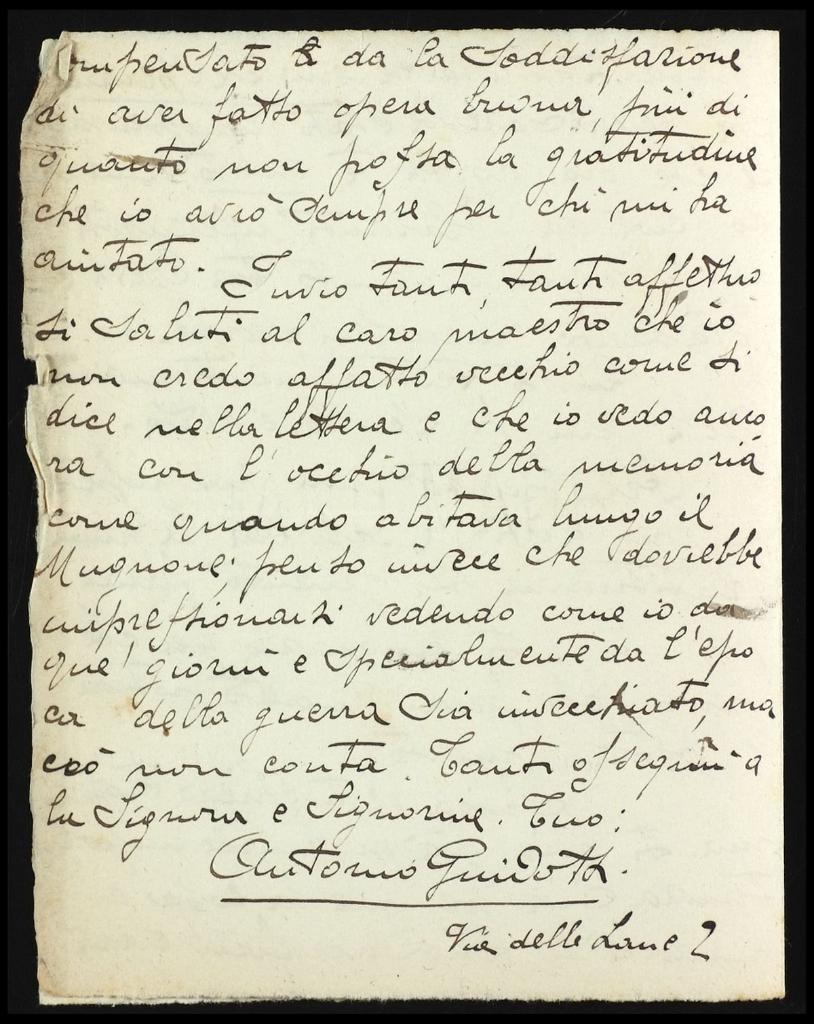 compensato da la soddisfazione
di aver fatto opera buona, più di
quanto non possa la gratitudine
che io avrò sempre per chi mi ha
aiutato.
Invio tanti, tanti affettuo
si saluti al caro maestro che io
non credo affatto vecchio come si
dice nella lettera e che io vedo anco
ra con l'occhio della memoria
come quando abitava lungo il
Mugnone; penso invece che dovrebbe
impressionarsi vedendo come io da
que' giorni e specialmente da l'epo
ca della guerra sia invecchiato, ma
ciò non conta. Tanti ossequii a
la Signora e Signorine. Tuo:
Antonio Guidotti.
Via delle Lane 2